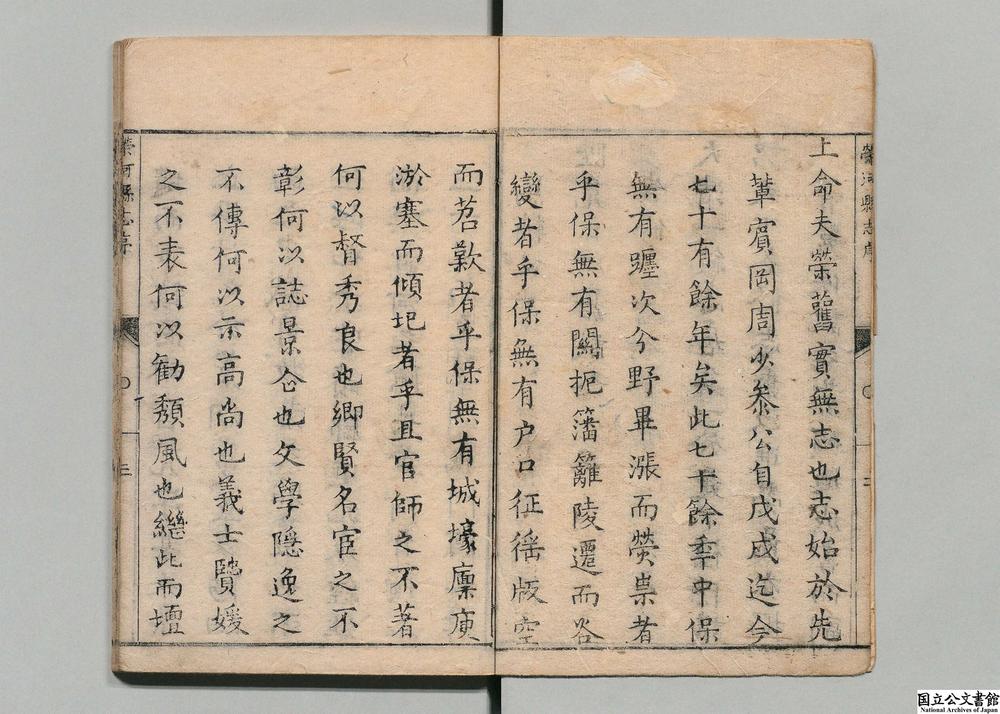 上命夫榮舊實無志也志始於先
輩賓岡周少叅公自戊戌迄今
七十有餘年矣此七十餘季中保
無有躔次分野畢漲而熒祟者
乎保無有關扼籓籬陵遷而谷
變者乎保無有户口征徭版空
而苕歎者乎保無有城壕廩庾
淤塞而傾圮者乎且官師之不著
何以督秀良也鄉賢名宦之不
彰何以誌景仰也文學隱逸之
不傳何以示高尚也義士賢媛
之不表何以勸頽風也繼此而壇
榮河縣志序
三
榮河縣志序
国立公文書館
National Archives of Japan